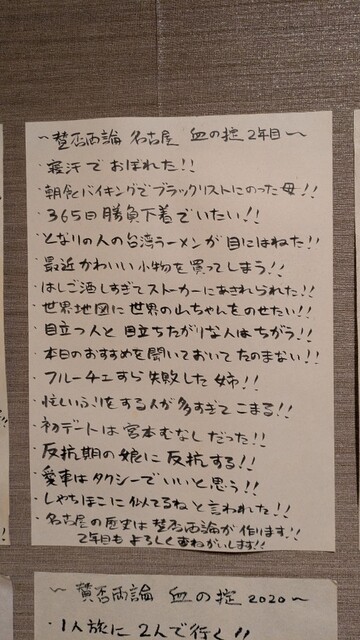 ～賛否両論 名古屋 血の掟 2年目～
・寝汗でおぼれた!!
・朝食バイキングでブラックリストにのった母!!
・365日勝負下着でいたい!!
・となりの人の台湾ラーメンが目にはねた!!
・最近かわいい小物を買ってしまう!!
・はしご酒しすぎてストーカーにあきれられた!!
・世界地図に世界の山ちゃんをのせたい!!
・目立つ人と目立ちたがりな人はちがう!!
・本日のおすすめを聞いておいてたのまない!!
・フルーチェすら失敗した姉!!
・忙しいふりをする人が多すぎてこまる!!
・初デートは宮本むなしだった!!
・反抗期の娘に反抗する!!
・愛車はタクシーでいいと思う!!
・しゃちほこに似てるねと言われた!!
・名古屋の歴史は賛否両論が作ります!!
2年目もよろしくおねがいします!!
～賛否両論 血の掟 2020～
・1人旅に2人で行く!!